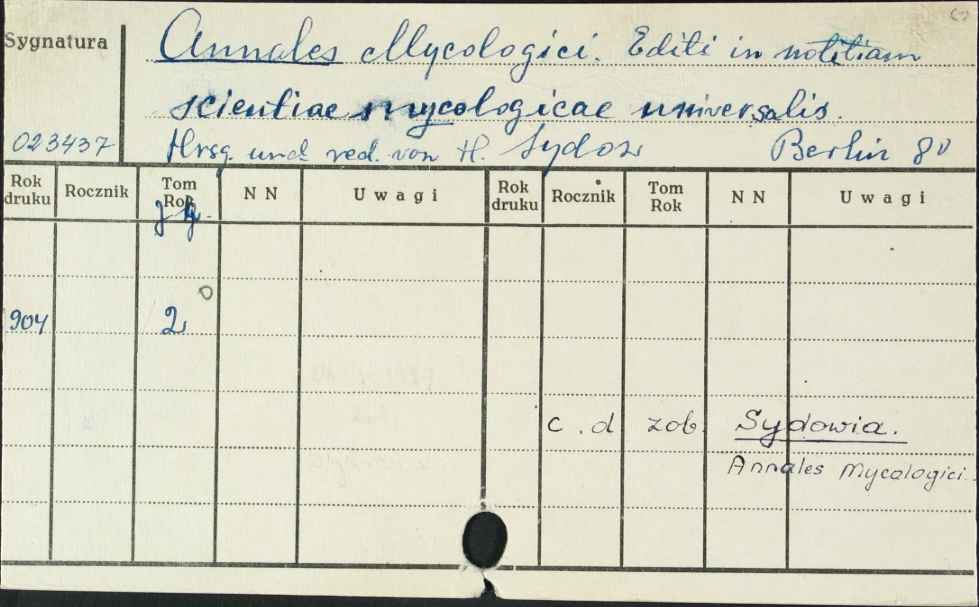 Sygnatura
Annales Mycologici. Editi in notitiam
scientiae mycologicae universalis.
023437 Hrsg. und red. von H. Sydow Berlin 8°
Rok druku Rocznik Tom Rok N N Uwagi Rok druku Rocznik Tom Rok N N Uwagi
Jg.
904 2
c. d zob. Sydowia.
Annales Mycologici.